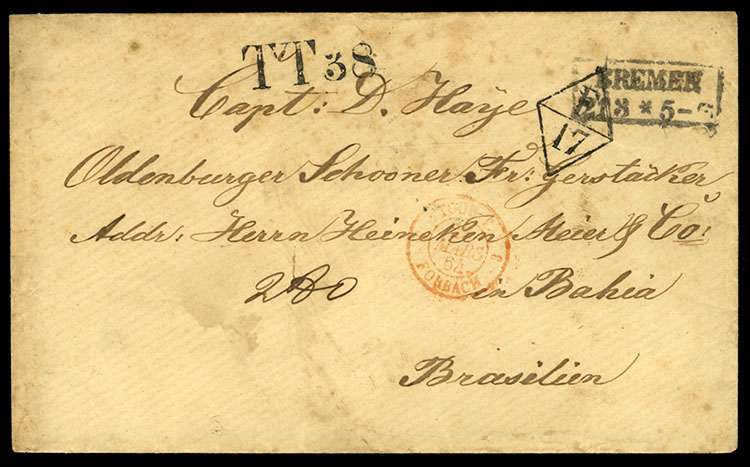 TT 38
BREMEN
Capt: D. Haye
F.
17
Oldenburger Schooner Fr: gerstäcker
Addr: Herrn Heineken Meier & Co:
64
FORBACH
280 in Bahia
Brasilien